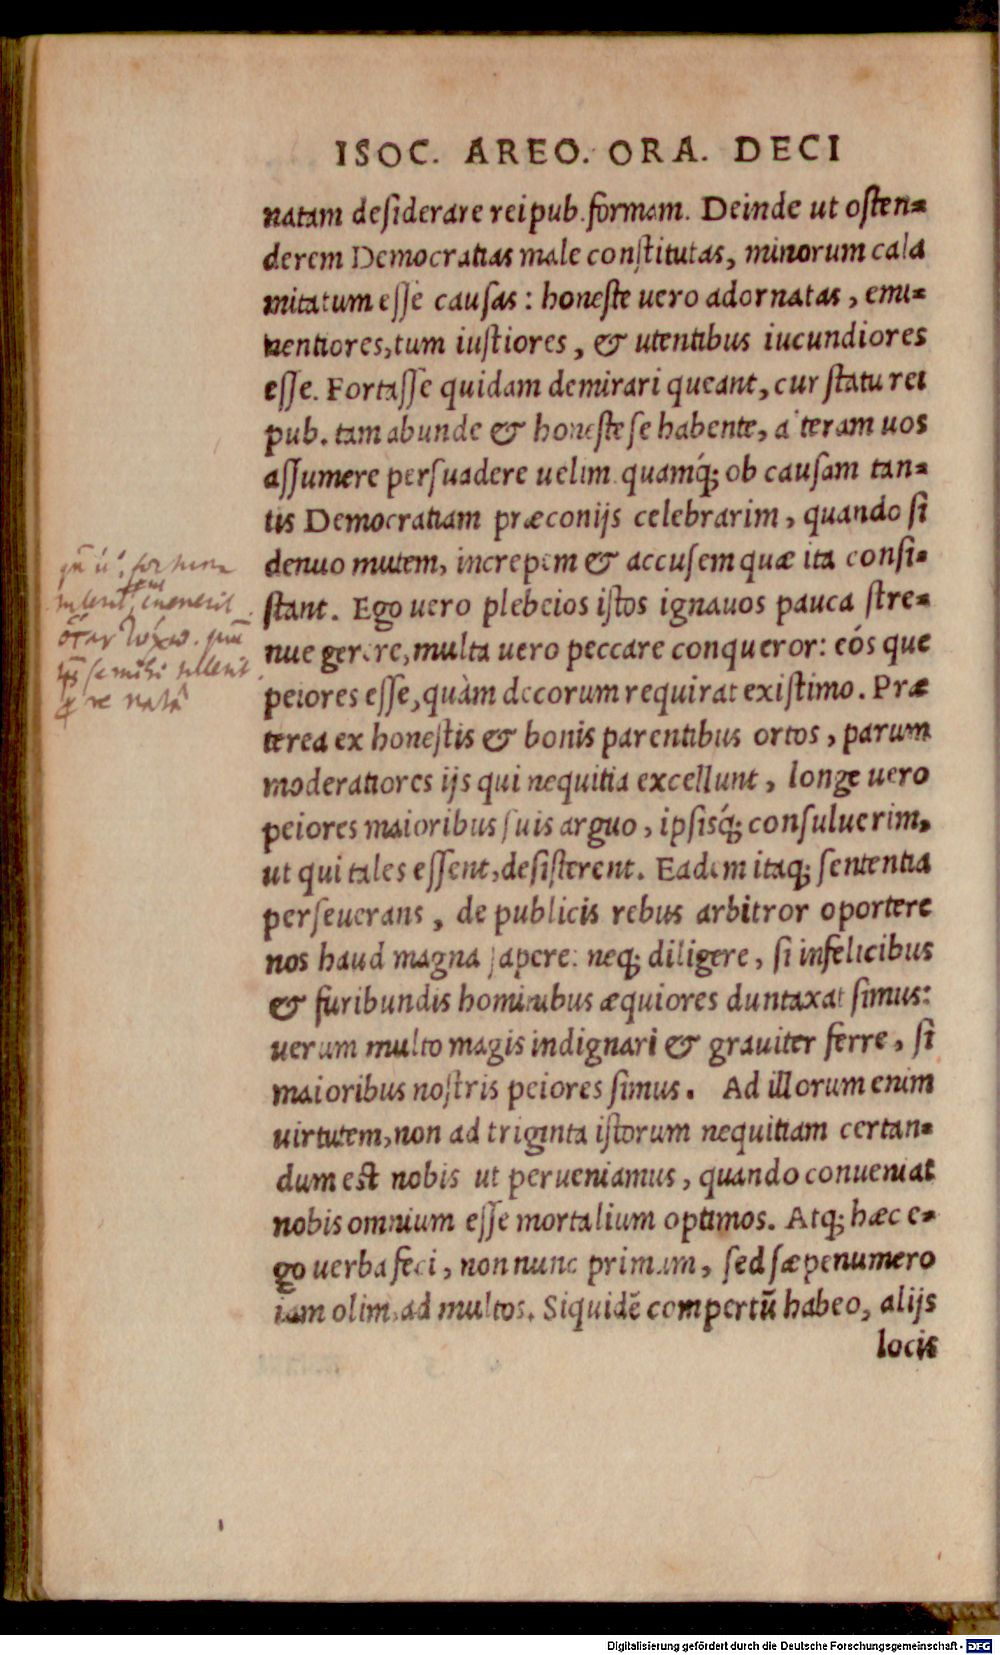 ISOC. AREO. ORA. DECI
natam desiderare reipub. formam. Deinde ut osten=
derem Democratias male constitutas, minorum cala
mitatum esse causas: honeste uero adornatas, emi=
nentiores, tum iustiores, & utentibus iucundiores
esse. Fortasse quidam demirari queant, cur statu rei
pub. tam abunde & honeste se habente, alteram uos
assumere persuadere uelim. quamq́; ob causam tan=
tis Democratiam præconijs celebrarim, quando si
denuo mutem, increpem & accusem quæ ita consi=
stant. Ego uero plebeios istos ignauos pauca stre=
nue gerere, multa uero peccare conqueror: eós que
peiores esse, quàm decorum requirat existimo. Præ
terea ex honestis & bonis parentibus ortos, parum
moderatiores ijs qui nequitia excellunt, longe uero
peiores maioribus suis arguo, ipsisq́; consuluerim,
ut qui tales essent, desisterent. Eadem itaq; sententia
perseuerans, de publicis rebus arbitror oportere
nos haud magna sapere: neq; diligere, si infelicibus
& furibundis hominibus æquiores duntaxat simus:
uerum multo magis indignari & grauiter ferre, si
maioribus nostris peiores simus. Ad illorum enim
uirtutem, non ad triginta istorum nequitiam certan=
dum est nobis ut perueniamus, quando conueniat
nobis omnium esse mortalium optimos. Atq; hæc e=
go uerba feci, non nunc primum, sed sæpenumero
iam olim, ad multos. Siquidē compertū habeo, alijs
locis
re natâ
Digitalisierung gefördert durch die Deutsche Forschungsgemeinschaft - DFG